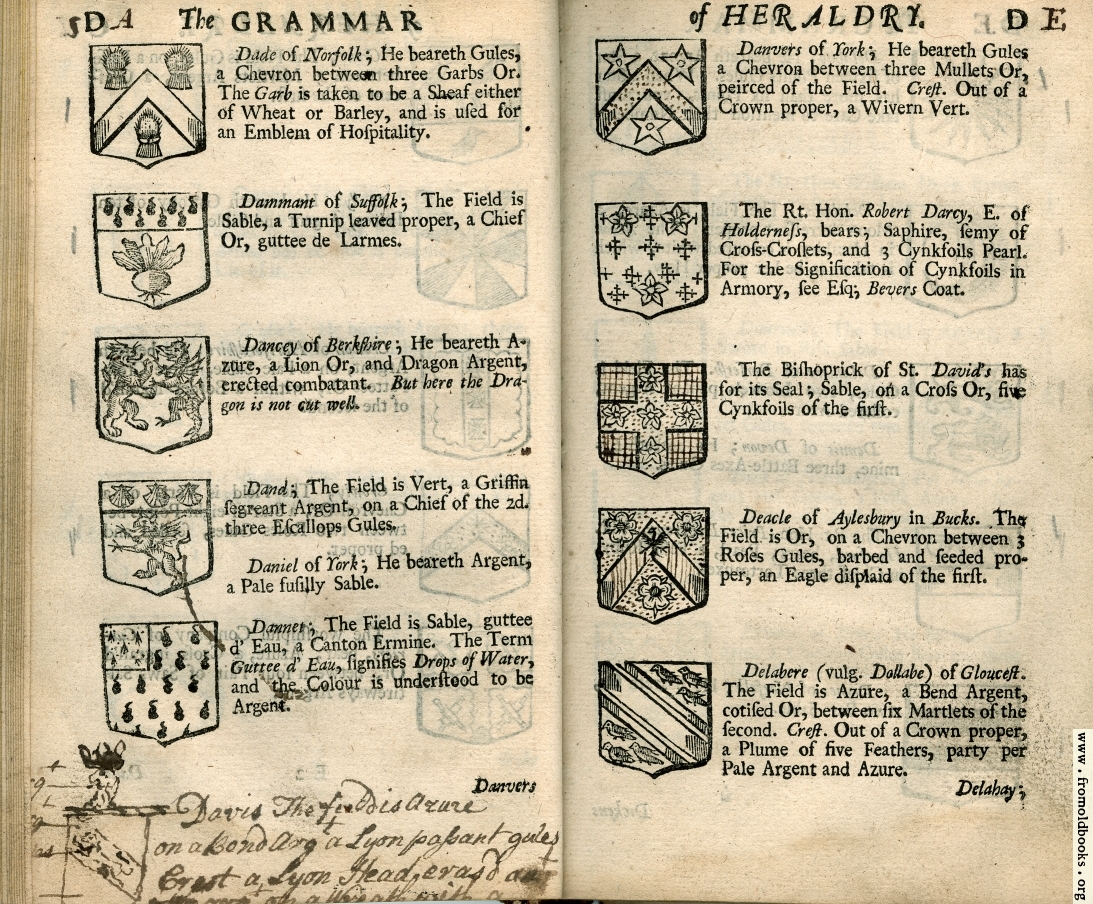 DA The GRAMMAR
Dade of Norfolk; He beareth Gules,
a Chevron between three Garbs Or.
The Garb is taken to be a Sheaf either
of Wheat or Barley, and is uſed for
an Emblem of Hoſpitality.
Dammant of Suffolk; The Field is
Sable, a Turnip leaved proper, a Chief
Or, guttee de Larmes.
Dancey of Berkſhire; He beareth A-
zure, a Lion Or, and Dragon Argent,
erected combatant. But here the Dra-
gon is not cut well.
Dand; The Field is Vert, a Griffin
ſegreant Argent, on a Chief of the 2d.
three Eſcallops Gules.
Daniel of York; He beareth Argent,
a Pale fuſilly Sable.
Dannet; The Field is Sable, guttee
d' Eau, a Canton Ermine. The Term
Guttee d' Eau, ſignifies Drops of Water,
and the Colour is underſtood to be
Argent.
Danvers
Davis The field is Azure
on a Bend Arg a Lyon paſsant gules
Crest a Lyon Head, erasd
of HERALDRY. DE
Danvers of York; He beareth Gules
a Chevron between three Mullets Or,
peirced of the Field. Creſt. Out of a
Crown proper, a Wivern Vert.
The Rt. Hon. Robert Darcy, E. of
Holderneſs, bears; Saphire, ſemy of
Croſs-Croſlets, and 3 Cynkfoils Pearl.
For the Signification of Cynkfoils in
Armory, ſee Eſq; Bevers Coat.
The Biſhoprick of St. David's has
for its Seal; Sable, on a Croſs Or, five
Cynkfoils of the firſt.
Deacle of Aylesbury in Bucks. The
Field is Or, on a Chevron between 3
Roſes Gules, barbed and ſeeded pro-
per, an Eagle diſplaid of the firſt.
Delabere (vulg. Dollabe) of Glouceſt.
The Field is Azure, a Bend Argent,
cotiſed Or, between ſix Martlets of the
ſecond. Creſt. Out of a Crown proper,
a Plume of five Feathers, party per
Pale Argent and Azure.
Delahay;
www.fromoldbooks.org